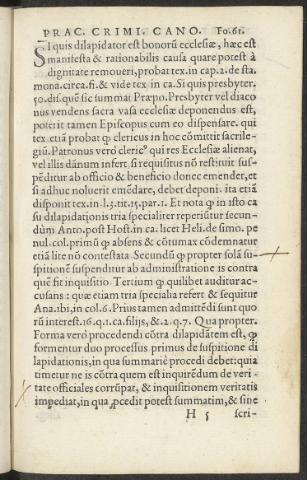 PRAC. CRIMI. CANO. Fo. 61.
Si quis dilapidator est bonorũ ecclesiæ, hæc est
manifesta & rationabilis causa quare potest à
dignitate remoueri, probat tex. in cap. 2. de sta.
mona. circa. fi. & vide tex in ca. Si quis presbyter.
50. dis. quẽ sic summat Præpo. Presbyter vel diaco
nus vendens sacra vasa ecclesiæ deponendus est,
poterit tamen Episcopus cum eo dispensare. qui
tex etiã probat ꝙ clericus in hoc cõmittit sacrile-
giũ. Patronus verò cleric⁹ qui res Ecclesiæ alienat,
vel illis dãnum infert. si requisitus nõ restituit sus-
pẽditur ab officio & beneficio donec emendet, et
si adhuc noluerit emẽdare, debet deponi. ita etiã
disponit tex. in l. 3. tit. 15. par. 1. Et nota ꝙ in isto ca
su dilapidationis tria specialiter reperiũtur secun-
dùm Anto. post Host. in ca. licet Heli. de simo. pe
nul. col. primũ ꝙ absens & cõtumax cõdemnatur
etiã lite nõ contestata Secundũ ꝙ propter solã su-
spitionẽ suspenditur ab administratione is contra
quẽ fit inquisitio Tertium ꝙ quilibet auditur ac-
cusans : quæ etiam tria specialia refert & sequitur
Ana. ibi, in col. 6. Prius tamen admittẽdi sunt quo
rũ interest. 16. q. 1. ca. filijs, & 2. q. 7. Qua propter.
Forma verò procedendi cõtra dilapidãtem est, ꝙ
formentur duo processus primus de suspitione di
lapidationis, in qua summariè procedi debet: quia
timetur ne is cõtra quem est inquirẽdum de veri-
tate officiales corrũpat, & inquisitionem veritatis
impediat, in qua ꝓcedit potest summatim, & sine
H 5 scri-